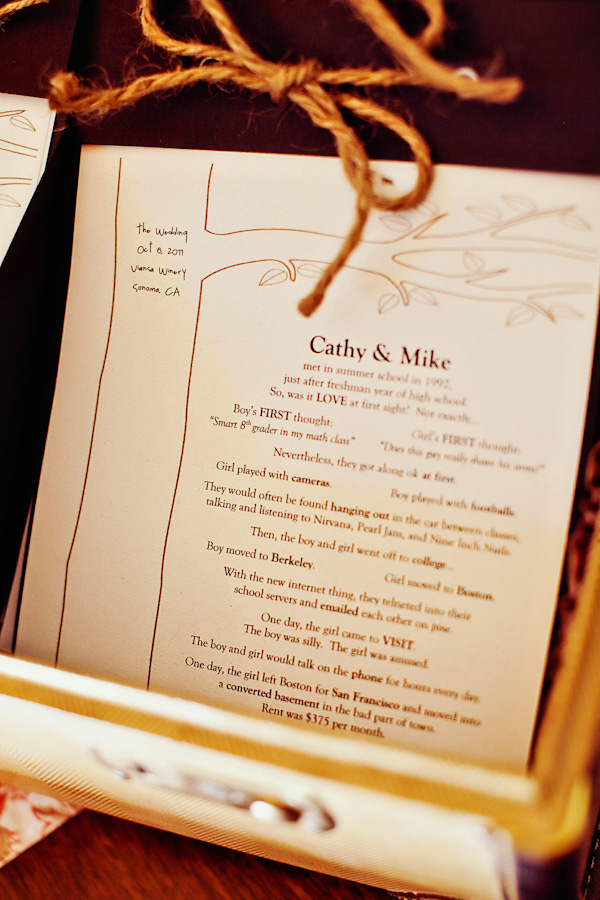 the Wedding
Oct 8. 2011
Viansa Winery
Sonoma CA
Cathy & Mike
met in summer school in 1992,
just after freshman year of high school.
So, was it LOVE at first sight? Not exactly...
Boy's FIRST thought:
"Smart 8th grader in my math class"
Girl's FIRST thought:
"Does this guy really shave his arms?"
Nevertheless, they got along ok at first.
Girl played with cameras.
Boy played with footballs.
They would often be found hanging out in the car between classes,
talking and listening to Nirvana, Pearl Jam, and Nine Inch Nails.
Then, the boy and girl went off to college...
Boy moved to Berkeley.
Girl moved to Boston.
With the new internet thing, they telneted into their
school servers and emailed each other on pine.
One day, the girl came to VISIT.
The boy was silly. The girl was amused.
The boy and girl would talk on the phone for hours every day.
One day, the girl left Boston for San Francisco and moved into
a converted basement in the bad part of town.
Rent was $375 per month.